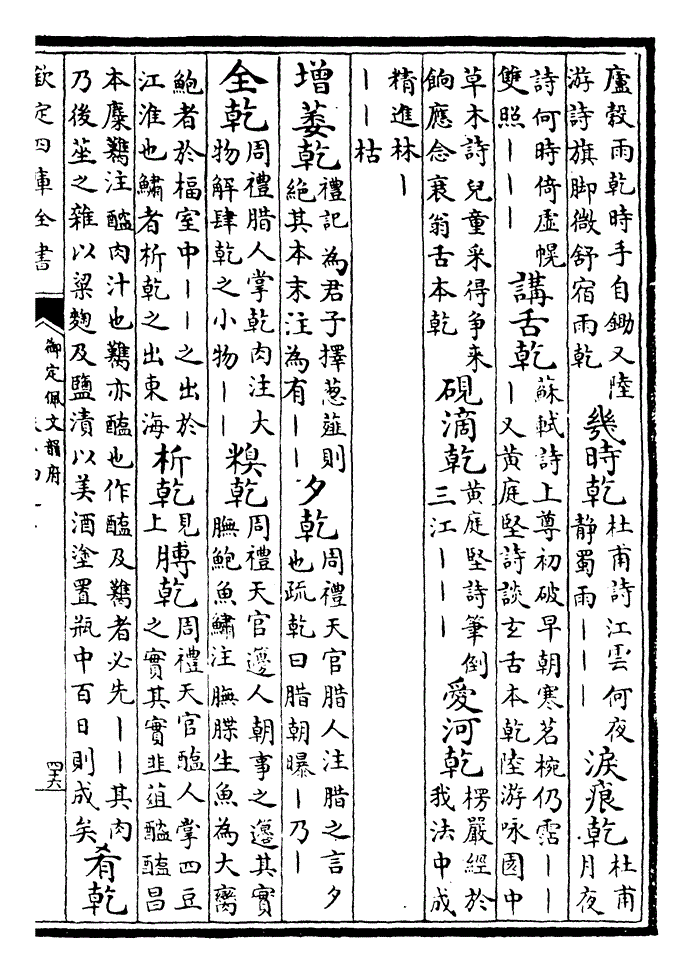 廬穀雨乾時手自鋤又陸游詩旗脚微舒宿雨乾幾時乾杜甫詩江雲何夜静蜀雨丨丨丨淚痕乾杜甫月夜
詩何時倚虛幌雙照丨丨丨講舌乾蘇軾詩上尊初破早朝寒茗椀仍霑丨丨丨又黄庭堅詩談玄舌本乾陸游咏園中
草木詩兒童采得争來餉應念衰翁舌本乾硯滴乾黄庭堅詩筆倒三江丨丨丨愛河乾楞嚴經於我法中成
精進林丨丨丨枯
增萎乾禮記為君子擇葱薤則絶其本末注為有丨丨夕乾周禮天官腊人注腊之言夕也疏乾曰腊朝曝丨乃丨
全乾周禮腊人掌乾肉注大物解肆乾之小物丨丨糗乾周禮天官籩人朝事之籩其實膴鮑魚鱐注膴䐑生魚為大臠
鮑者於楅室中丨丨之出於江淮也鱐者析乾之出東海析乾見上膊乾周禮天官醢人掌四豆之實其實韭菹醓醢昌
本麋臡注醓肉汁也臡亦醢也作醢及臡者必先丨丨其肉乃後莝之雜以粱麴及鹽漬以美酒塗置瓶中百日則成矣肴乾
欽定四庫全書
御定佩文韻府
四六